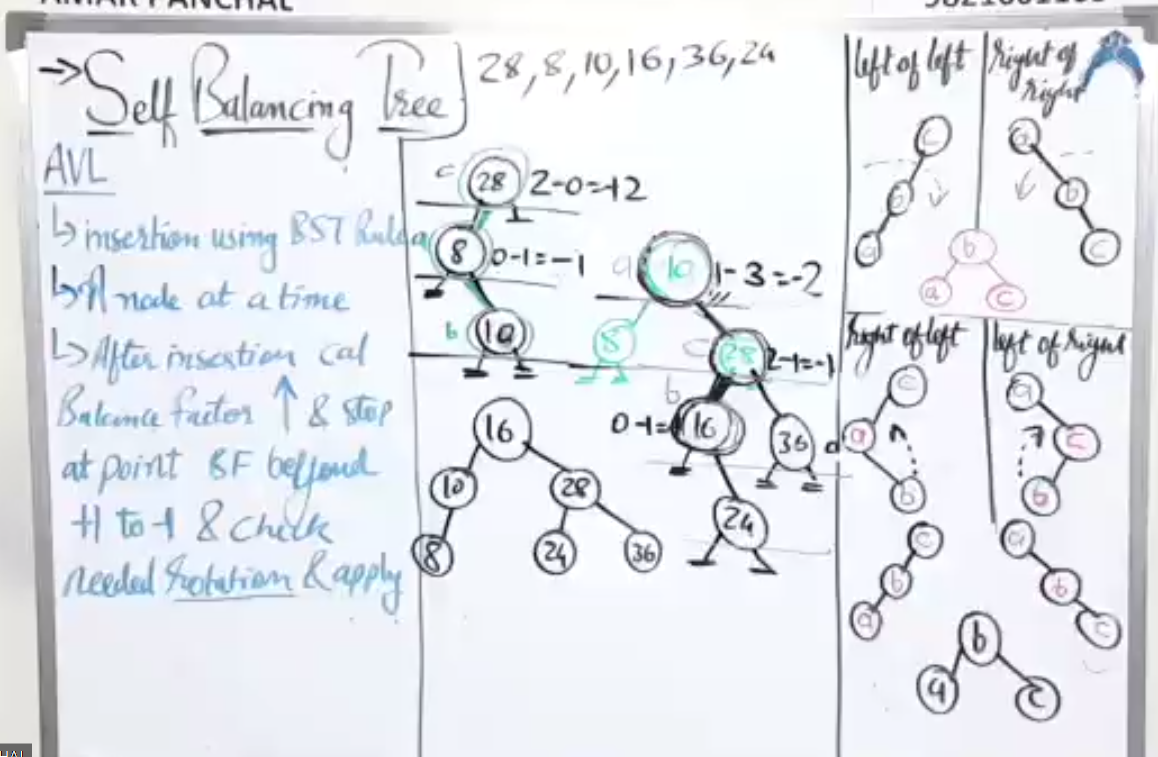 AMAR PANCHAL
9821601163
→ Self Balancing Tree
28, 8, 10, 16, 36, 24
AVL
↳ insertion using BST Rules
↳ A node at a time
↳ After insertion cal
Balance factor ↑ & stop
at point BF beyond
+1 to -1 & check
needed rotation & apply
c 28 2-0=+2
a 8 0-1=-1
b 10
a 10 1-3=-2
8 c 28 2-1=-1
b
0-1= 16 36
24
16
10 28
8 24 36
left of left
c
b
a
right of right
a
b
c
b
a c
right of left
c
a
b
left of right
a
c
b
c
b
a
a
b
c
b
a c
HAL